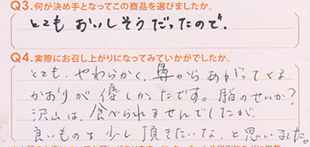 Q3.何が決め手となってこの商品を選びましたか。
とてもおいしそうだったので。
Q4.実際にお召し上がりになってみていかがでしたか。
とても、やわらかく、鼻からあがってくる
かおりが優しかったです。脂のせいか?
沢山は、食べられませんでしたが、
良いものを少し頂きたいな、と思いました。